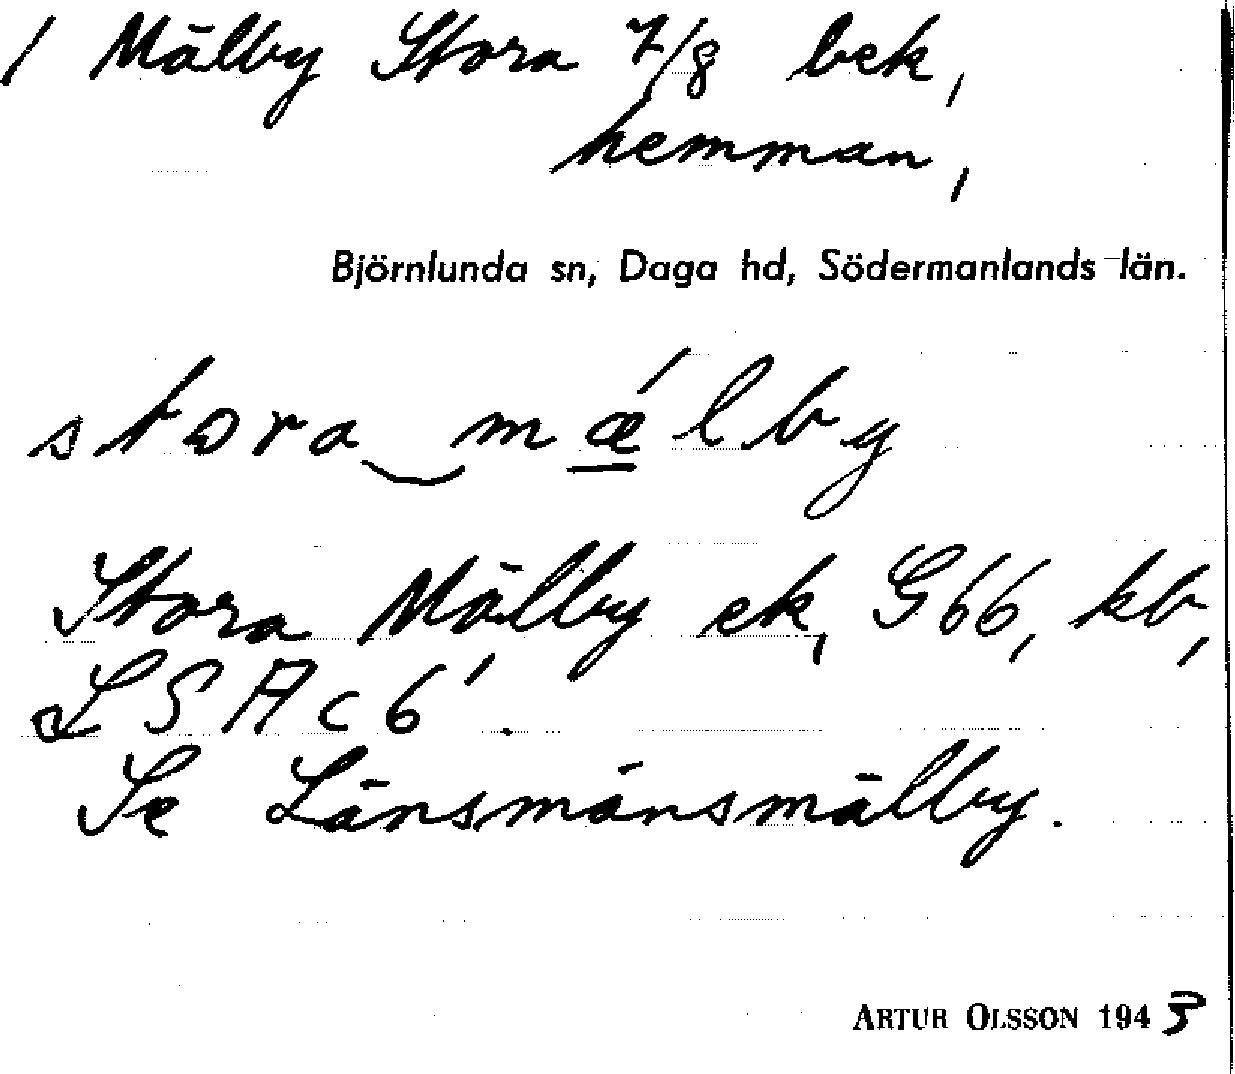 / Mälby Stora 7/8 bek,
hemman,
Björnlunda sn, Daga hd, Södermanlands län.
stora‿mǽlby
Stora Mälby ek, G66, kb,
LSA c 6'.
Se Länsmansmälby.
ARTUR OLSSON 1943